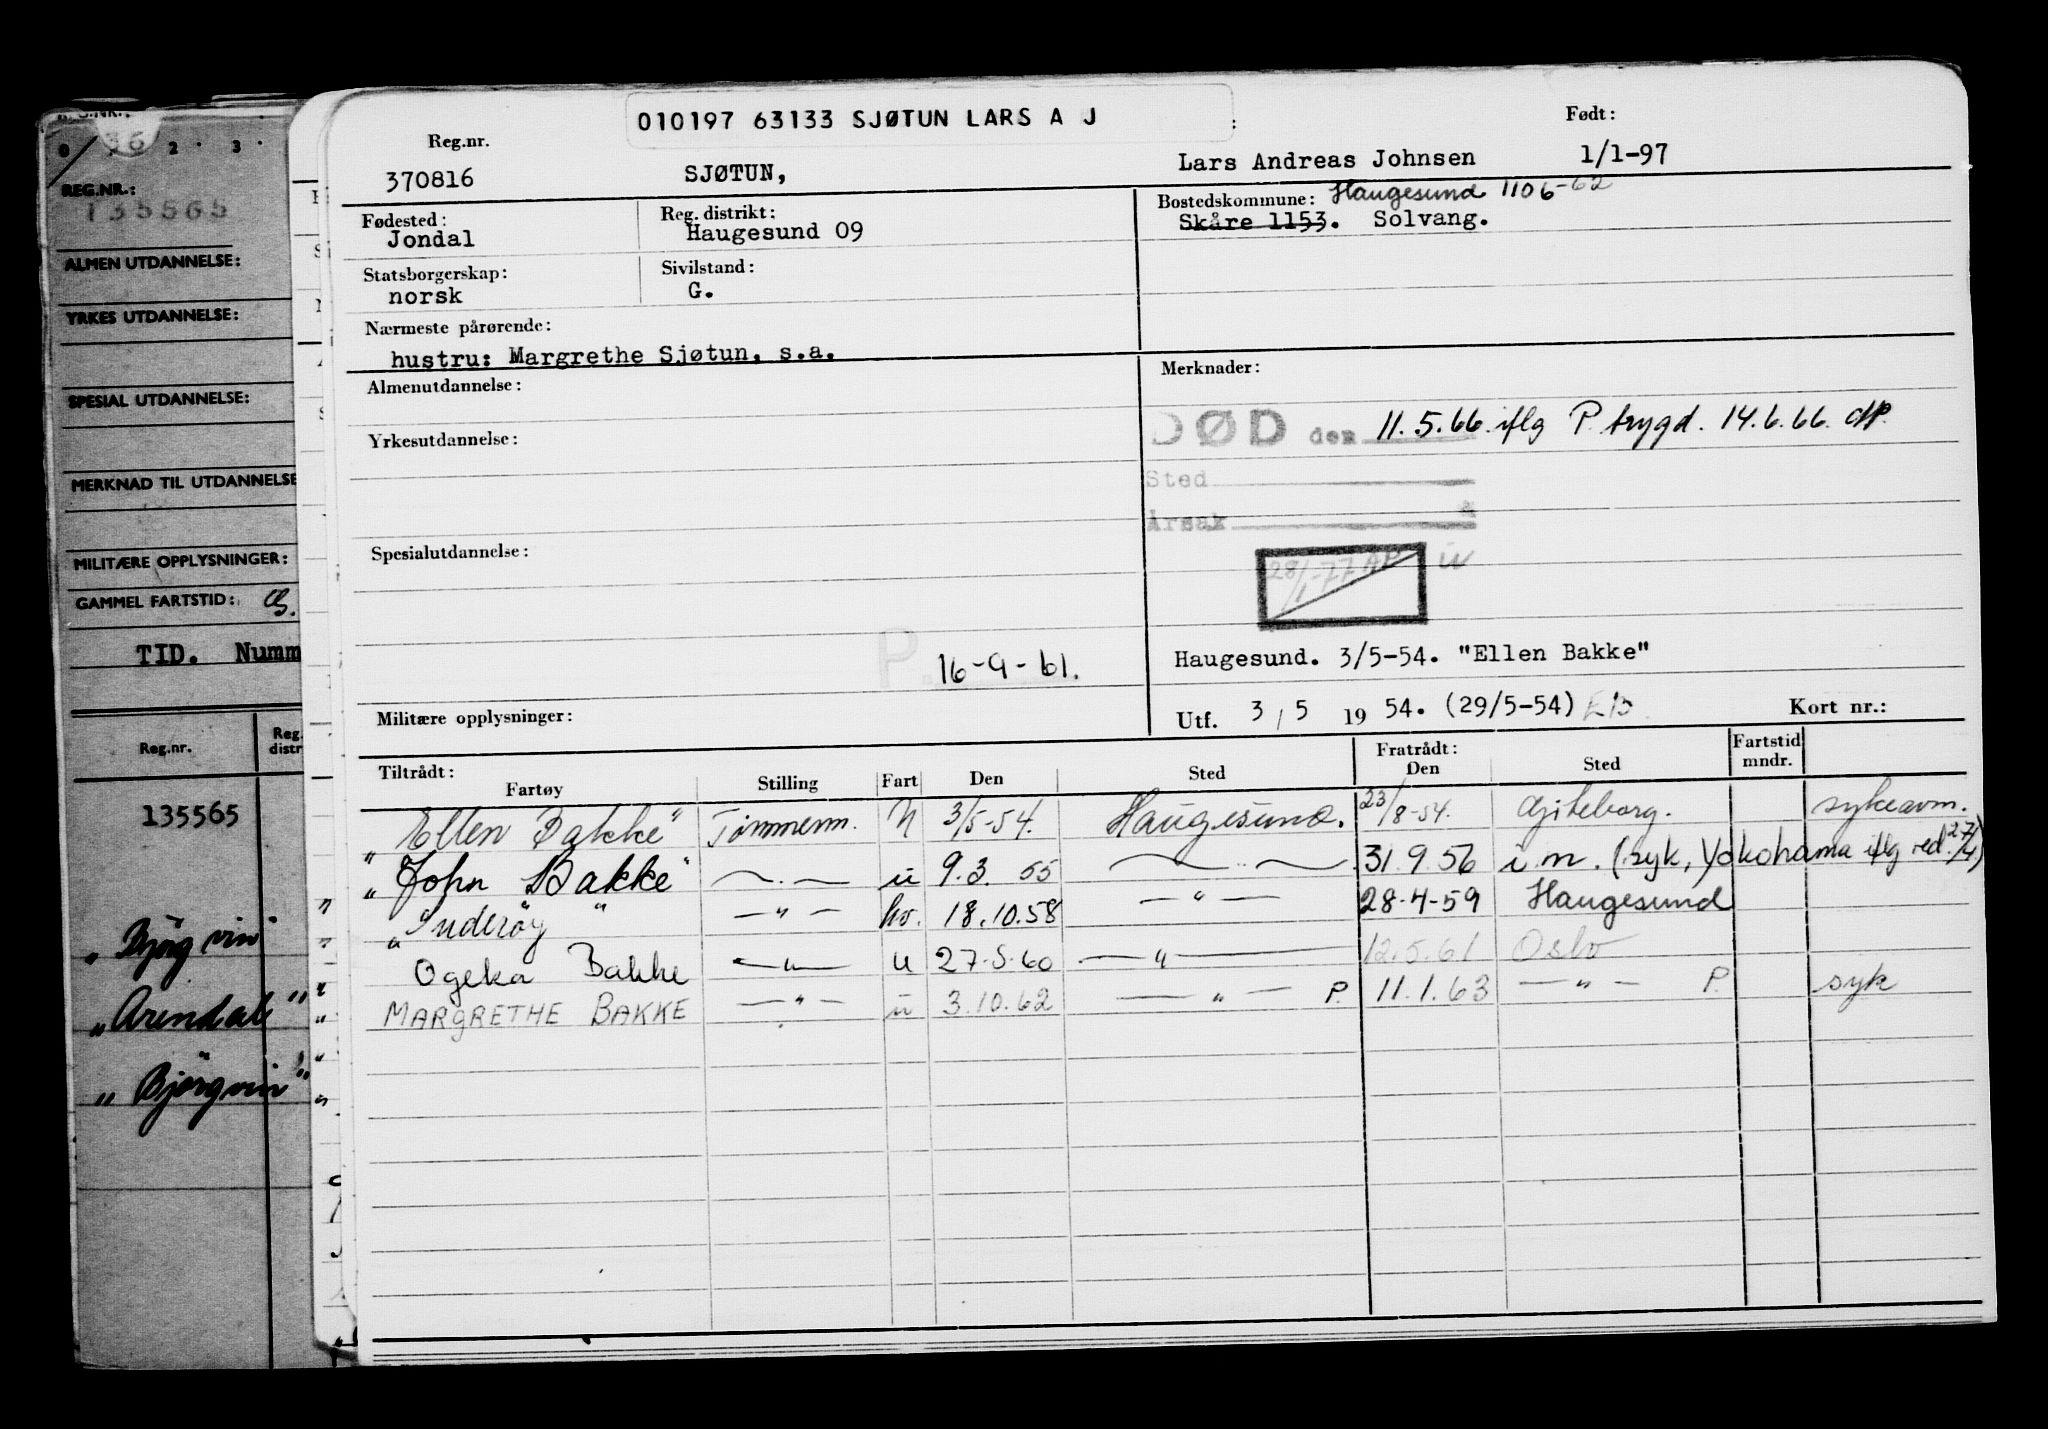 36
0 1 2 3
REG.NR.:
135565
ALMEN UTDANNELSE:
YRKES UTDANNELSE:
SPESIAL UTDANNELSE:
MERKNAD TIL UTDANNELSE
MILITÆRE OPPLYSNINGER:
GAMMEL FARTSTID:
TID. Numm
Reg.nr. Reg. distr
135565
„Bjørgvin"
„Arendal"
„Bjørgvin"
010197 63133 SJØTUN LARS A J
Reg.nr. Født:
370816 SJØTUN, Lars Andreas Johnsen 1/1-97
Fødested: Reg. distrikt: Bostedskommune: Haugesund 1106-62
Jondal Haugesund 09 Skåre 1153. Solvang.
Statsborgerskap: Sivilstand:
norsk G.
Nærmeste pårørende:
hustru: Margrethe Sjøtun, s.a.
Almenutdannelse: Merknader:
DØD den 11.5.66 iflg P. trygd. 14.6.66.
Yrkesutdannelse:
Sted
Årsak
Spesialutdannelse:
28/1-77
P. 16-9-61.
Haugesund. 3/5-54. "Ellen Bakke"
Militære opplysninger: Utf. 3/5 1954. (29/5-54) Kort nr.:
Tiltrådt: Fratrådt: Fartstid mndr.
Fartøy Stilling Fart Den Sted Den Sted
„Ellen Bakke" Tømmerm. N 3/5-54. Haugesund. 23/8-54. Gøteborg. sykeavm.
„John Bakke" —„— u 9.3.55 —„— 31.9.56 i.m. (syk, Yokohama iflg red. 27/4)
„Inderøy" —„— hv. 18.10.58 —„— 28-4-59 Haugesund
Ogeka Bakke —„— u 27.5.60 —„— 12.5.61 Oslo
MARGRETHE BAKKE —„— u 3.10.62 —„— P. 11.1.63 —„— P. syk